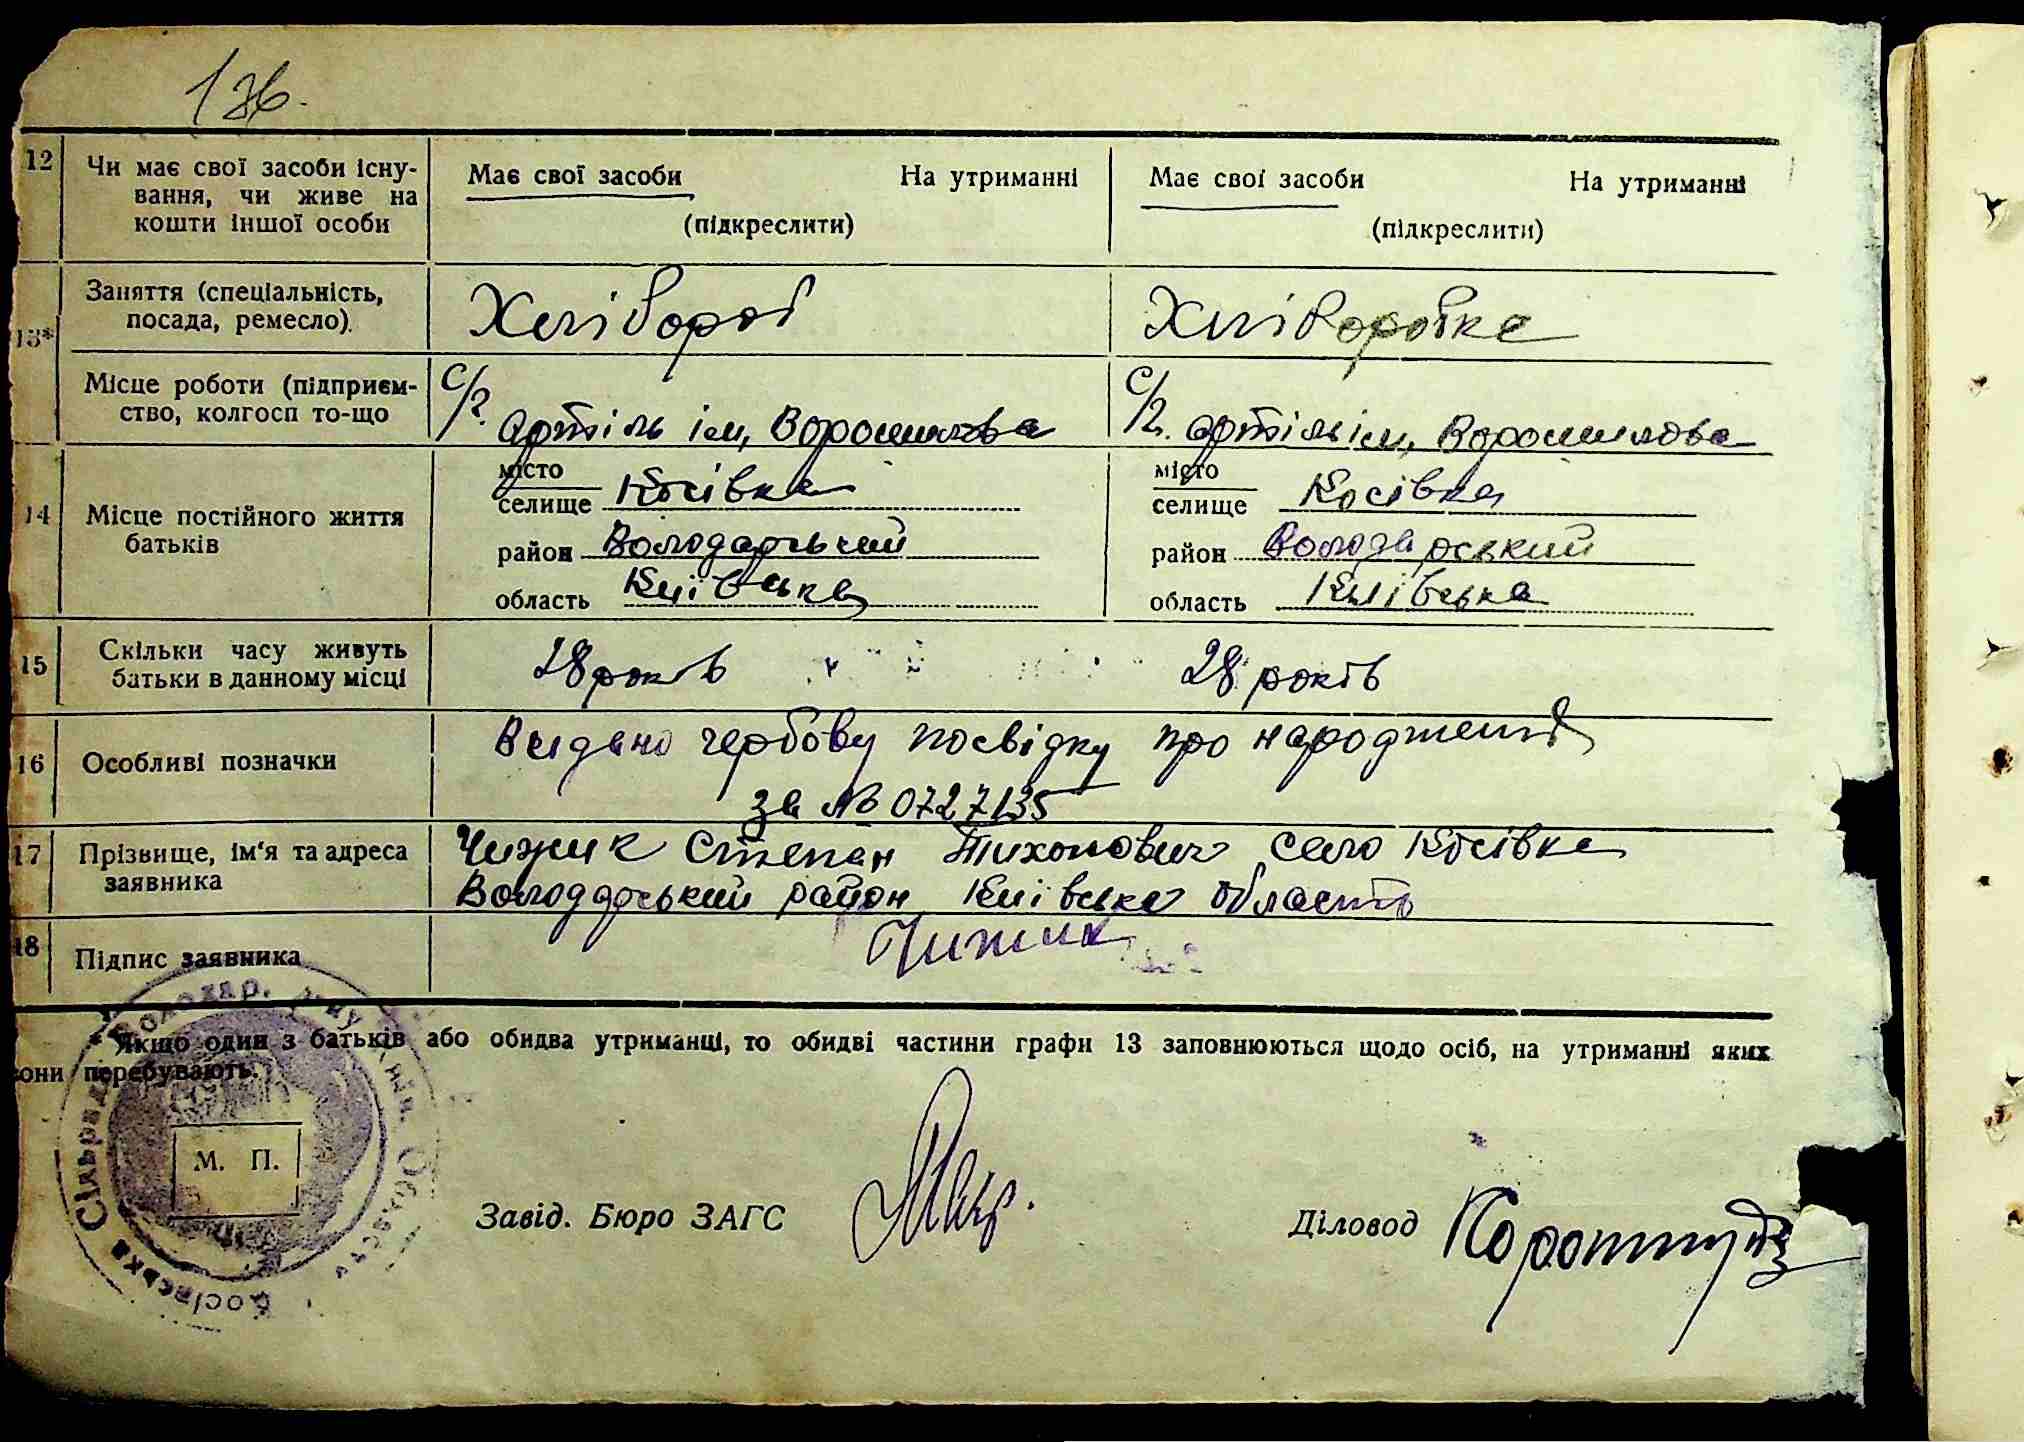 136.
12 Чи має свої засоби існу- Має свої засоби На утриманні Має свої засоби На утриманні
вання, чи живе на
кошти іншої особи (підкреслити) (підкреслити)
13* Заняття (спеціальність,
посада, ремесло) Хлібороб Хліборобка
Місце роботи (підприєм- С/г. С/г.
ство, колгосп то-що артіль ім, Ворошилова артіль ім, Ворошилова
14 Місце постійного життя
батьків
місто місто
селище Косівка селище Косівка
район Володарський район Володарський
область Київська область Київська
15 Скільки часу живуть
батьки в данному місці 28 років 28 років
16 Особливі позначки Видано гербову посвідку про народження
за № 0727135
17 Прізвище, ім'я та адреса Чижик Степан Тихонович село Косівка
заявника Володарський район Київська область
18 Підпис заявника Чижик
* Якщо один з батьків або обидва утриманці, то обидві частини графи 13 заповнюються щодо осіб, на утриманні яких
вони перебувають.
Косівська Сільрада Володар. р-ну Київ. Області
М. П.
Завід. Бюро ЗАГС
Діловод